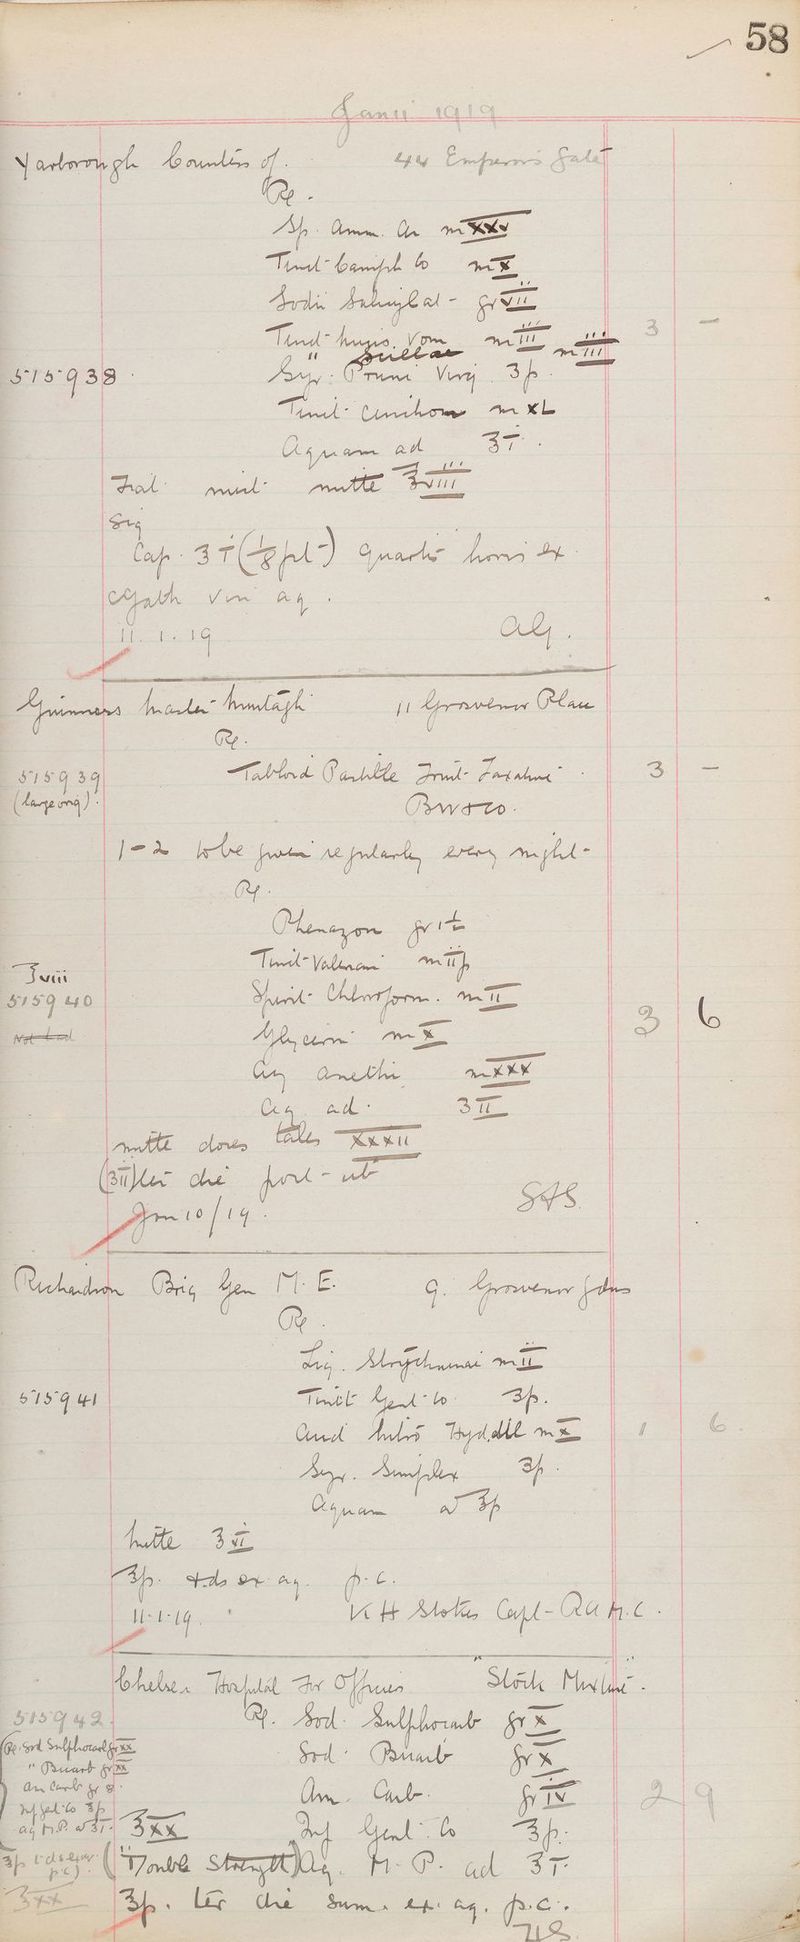 58
Jan 11 1919
Yarborough Countess of. 44 Emperors Gate
Rx.
Sp. Amm. Ar m xxv
Tinct Camph Co m x
Sodii Salicylat - gr vii
Tinct nucis vom m iii 3 -
" Scillae m iii
515938 Syr. Pruni Virg. ʒp.
Tinct. m xL
Aquam ad ℥i.
Fiat mist mitte ℥viii
Sig
Cap. ℥i (1/8 pt) quartis horis ex.
cyath vin aq.
11.1.19 AG.
Guinness Master Murtagh 11 Grosvenor Place
Rx.
515939 Tabloid Pastille Fruit Laxative 3 -
(large orig). BW & Co.
1-2 to be given regularly every night-
Rx.
Phenazon gr 1½
ʒviii Tinct Valerian m iip
515940 Spirit Chloroform. m ii 3 6
Not had Glycerin m x
Aq anethi m xxx
Aq ad. ʒii
mitte doses tales xxxii
(ʒii) ter die post cib
Jan 10/19. SAS.
Richardson Brig Gen M. E. 9. Grosvenor Gdns
Rx.
Liq. Strychninae m ii
515941 Tinct Gent Co ʒp.
Acid Nitro Hyd. dil m x 1 6.
Syr. Simplex ʒp.
Aquam ad ℥p
Mitte ℥vi
℥p. t.ds ex aq. p.c.
11.1.19. K H Stokes Capt - RAM.C.
Chelsea Hospital For Officers "Stock Mixture".
515942. Rx. Sod. Sulphocarb gr x
(Rx. Sod Sulphocarb gr xx Sod. Bicarb gr x
" Bicarb gr xx
Am Carb gr 8. Am. Carb. gr iv 2 9
Inf Gent Co ℥p ℥xx Inf Gent. Co ℥p.
aq M.P. ad ℥i. ("Double Strength) Aq. M. P. ad ℥i.
℥p t ds ex aq p.c.)
℥xx ℥p. ter die sum. ex. aq. p.c.
HS